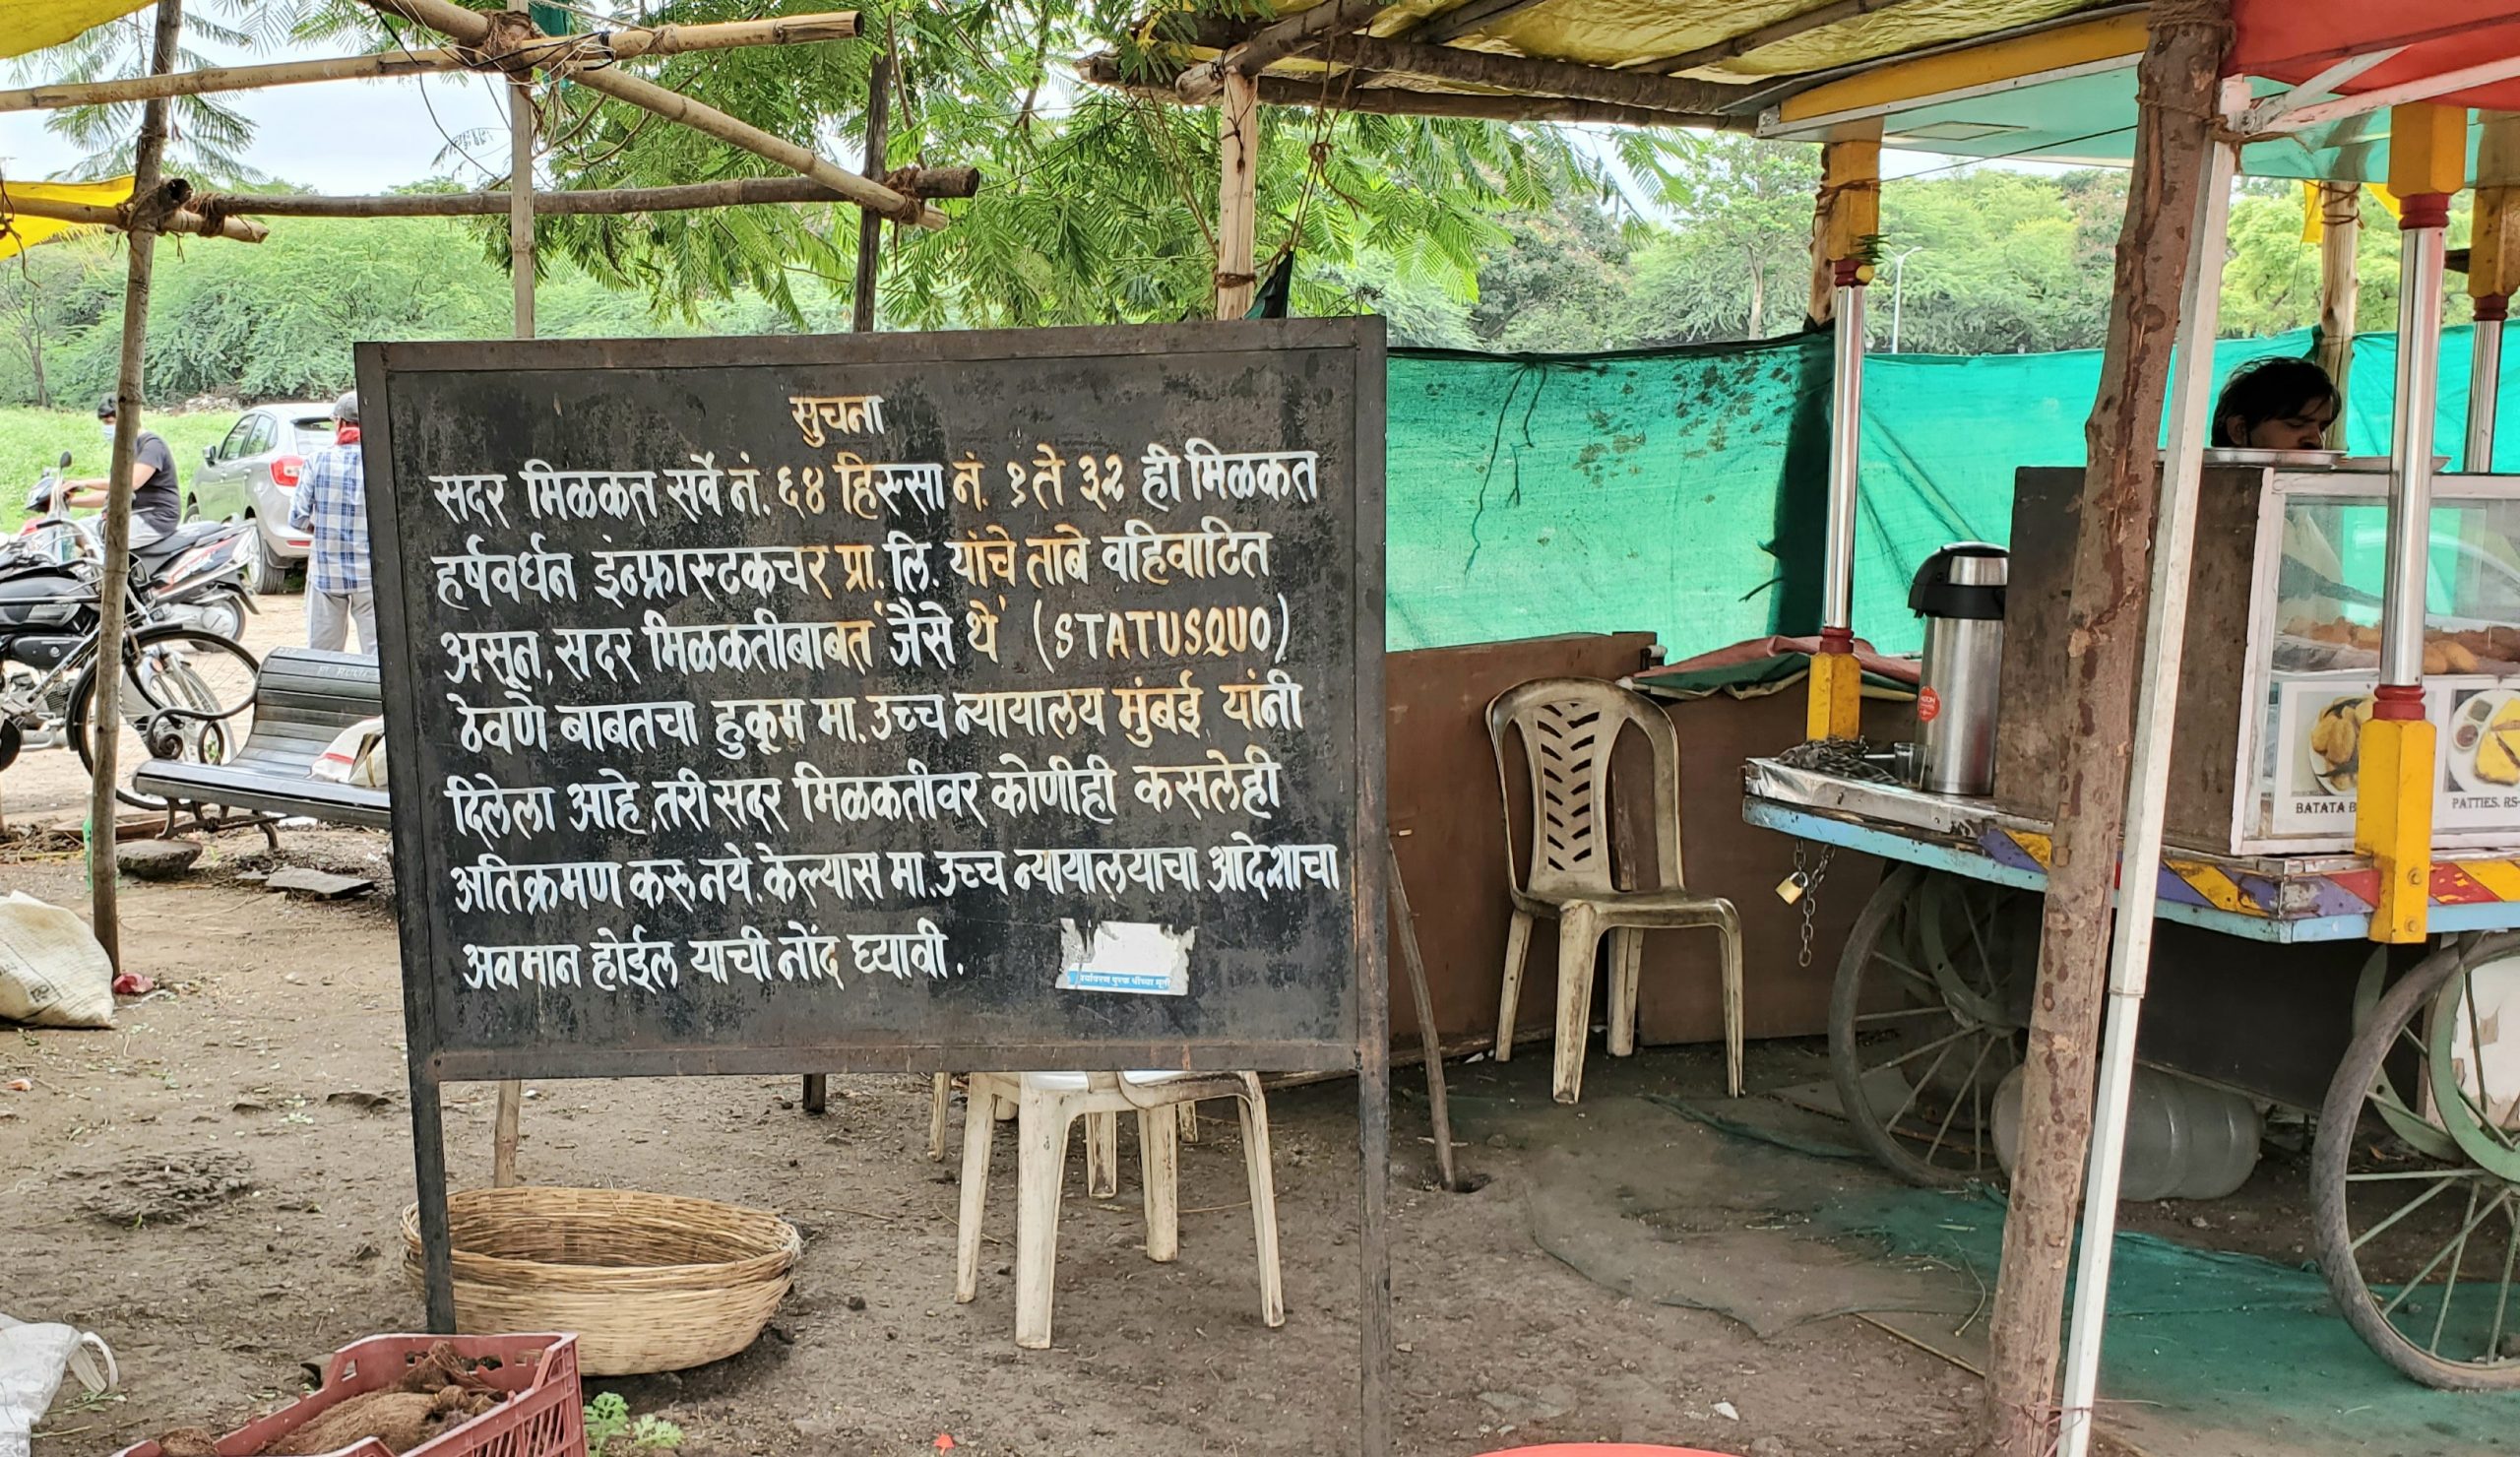 सुचना
सदर मिळकत सर्वे नं. ६४ हिस्सा नं. १ ते ३२ ही मिळकत
हर्षवर्धन इंन्फ्रास्टकचर प्रा. लि. यांचे ताबे वहिवाटित
असून, सदर मिळकतीबाबत 'जैसे थे' (STATUSQUO)
ठेवणे बाबतचा हुकूम मा. उच्च न्यायालय मुंबई यांनी
दिलेला आहे, तरी सदर मिळकतीवर कोणीही कसलेही
अतिक्रमण करू नये. केल्यास मा. उच्च न्यायालयाचा आदेशाचा
अवमान होईल याची नोंद घ्यावी.
BATATA
PATTIES. RS